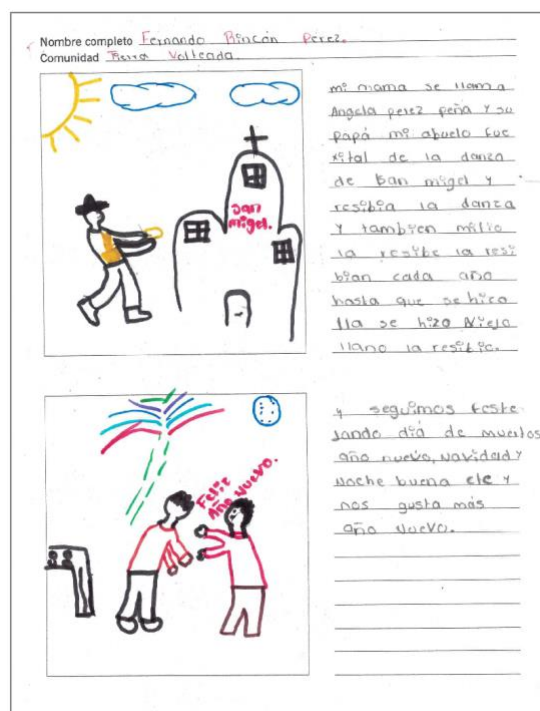 Nombre completo Fernando Rincón Perez.
Comunidad Volteada.
mi mama se llama
Angela perez peña y su
papá mi abuelo fue
de la danza
de San migel y
resibia la danza
y tambien mitio
la resibe la resi
bian cada año
hasta que se hico
lla se hizo Niejo
llano la resibio.
san
migel.
y seguimos feste
jando día de muertos
año nuevo, Navidad y
Noche buena etc y
nos gusta más
año Nuevo.
Feliz
Año Nuevo.